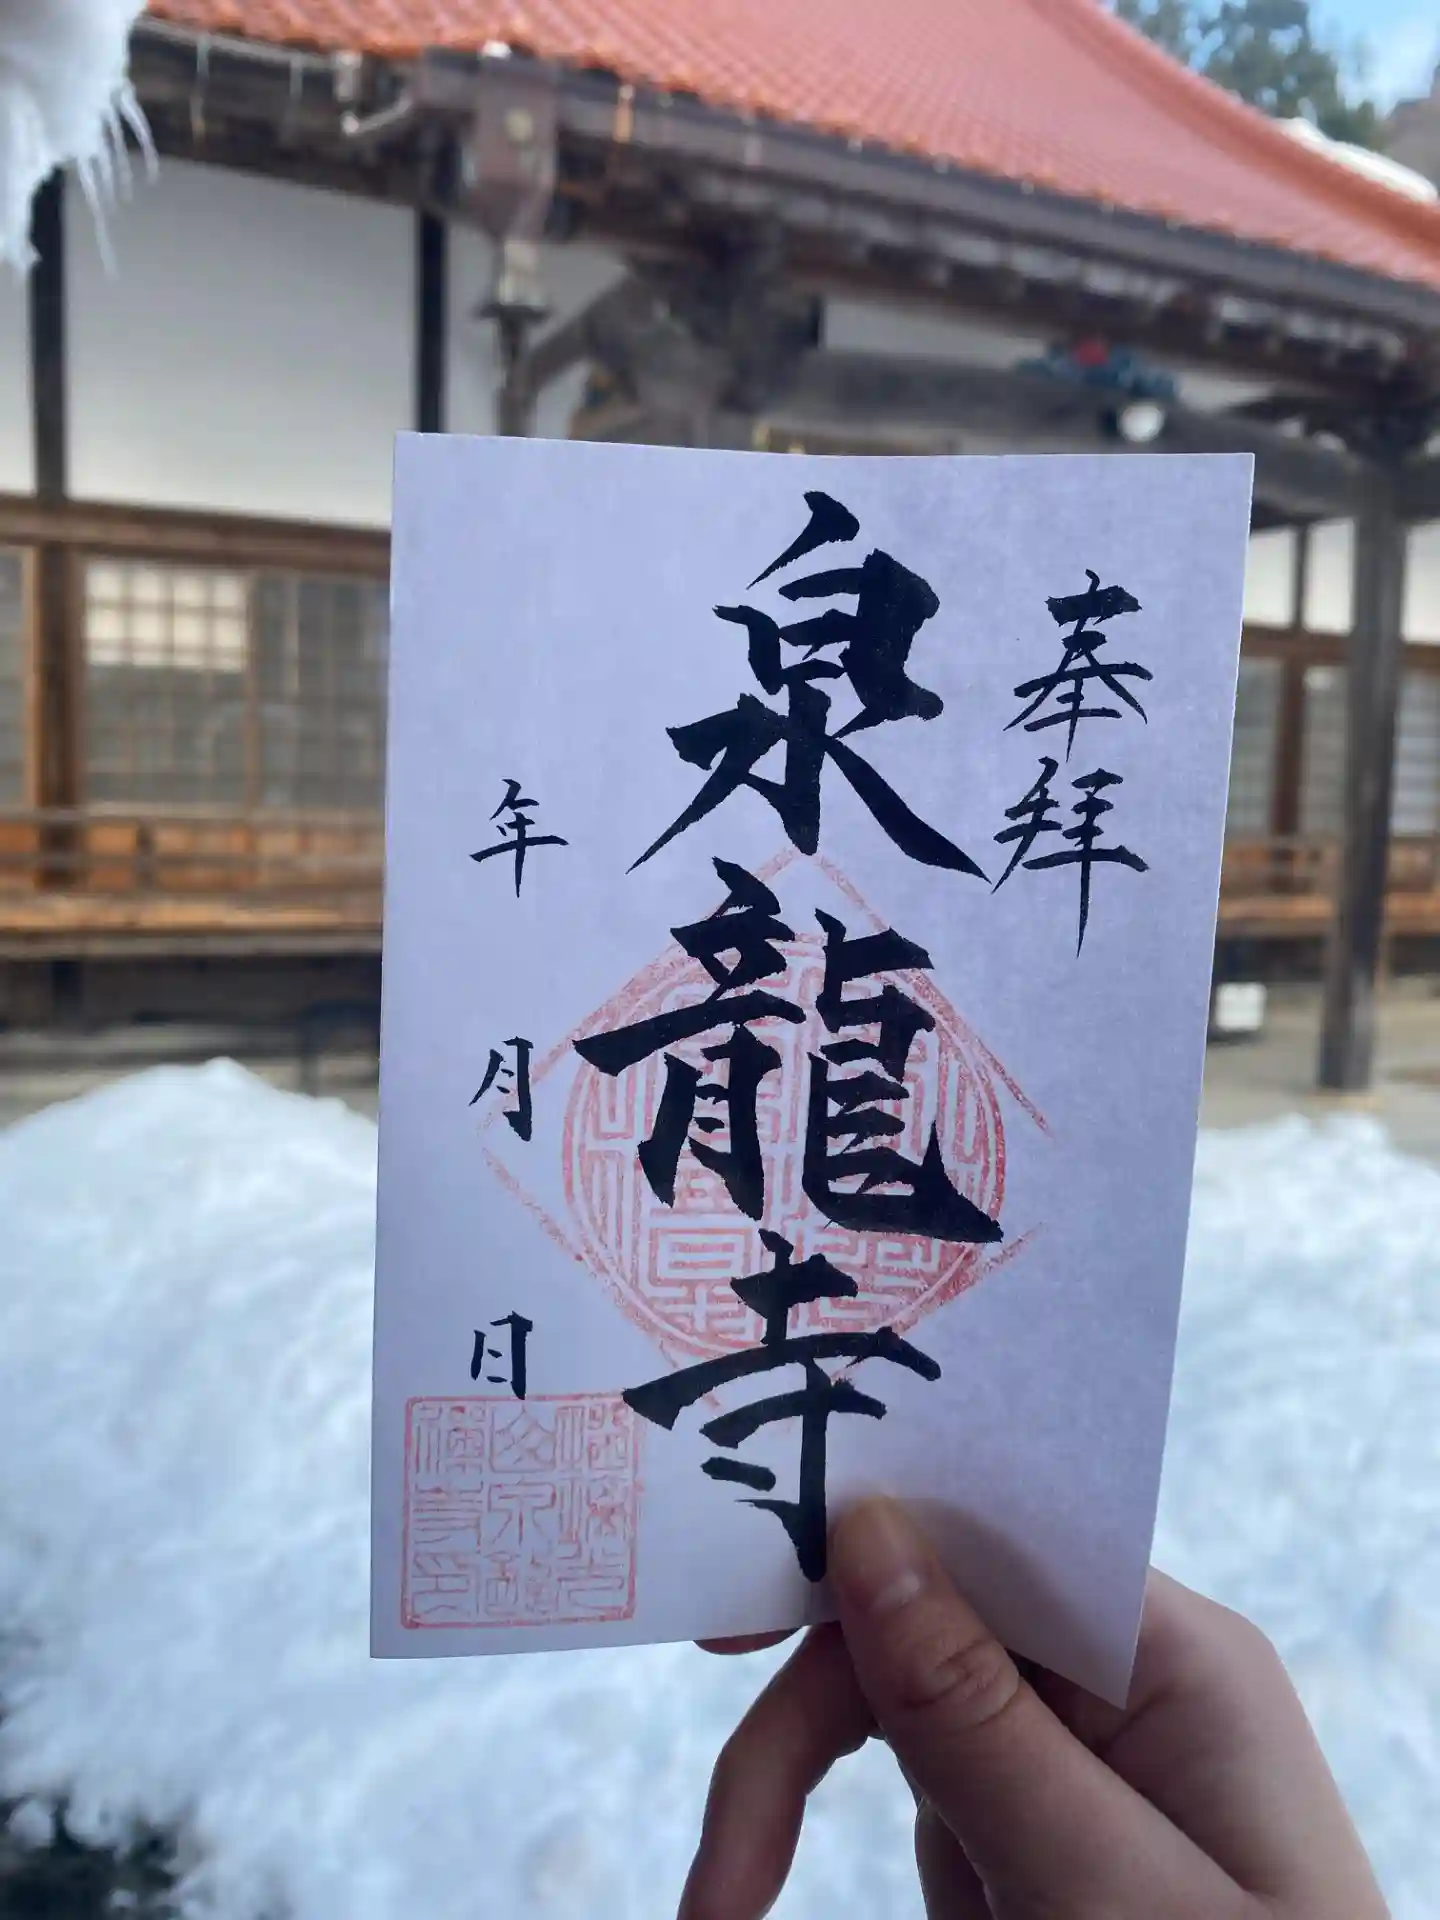 奉拝
泉龍寺
年 月 日